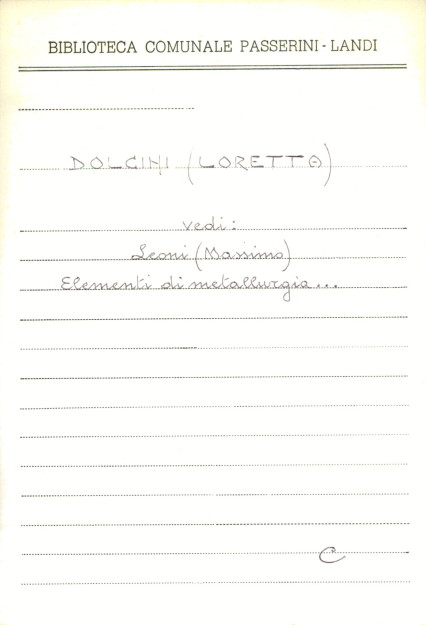 BIBLIOTECA COMUNALE PASSERINI - LANDI
DOLCINI (LORETTA)
vedi:
Leoni (Massimo)
Elementi di metallurgia...
C